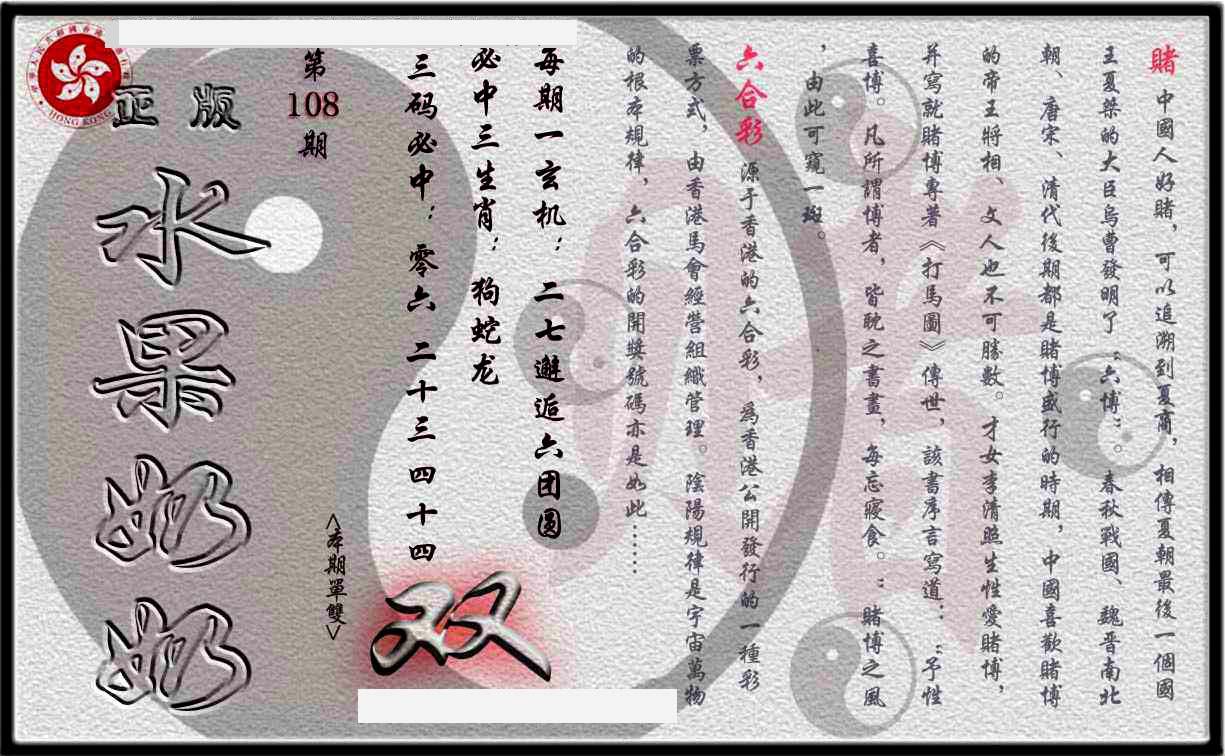 賭 中國人好賭，可以追溯到夏商，相傳夏朝最後一個國
王夏桀的大臣烏曹發明了“六博”。春秋戰國、魏晉南北
朝、唐宋、清代後期都是賭博盛行的時期，中國喜歡賭博
的帝王將相、文人也不可勝數。才女李清照生性愛賭博，
并寫就賭博專著《打馬圖》傳世，該書序言寫道：“予性
喜博。凡所謂博者，皆耽之書晝，每忘寢食。”賭博之風
，由此可窺一斑。
六合彩 源于香港的六合彩，為香港公開發行的一種彩
票方式，由香港馬會經營組織管理。陰陽規律是宇宙萬物
的根本規律，六合彩的開獎號碼亦是如此……
每期一玄机：二七邂逅六团圆
必中三生肖：狗蛇龙
三码必中：零六 二十三 四十四
双
<本期單雙>
第
108
期
正版
水果奶奶
HONG KONG